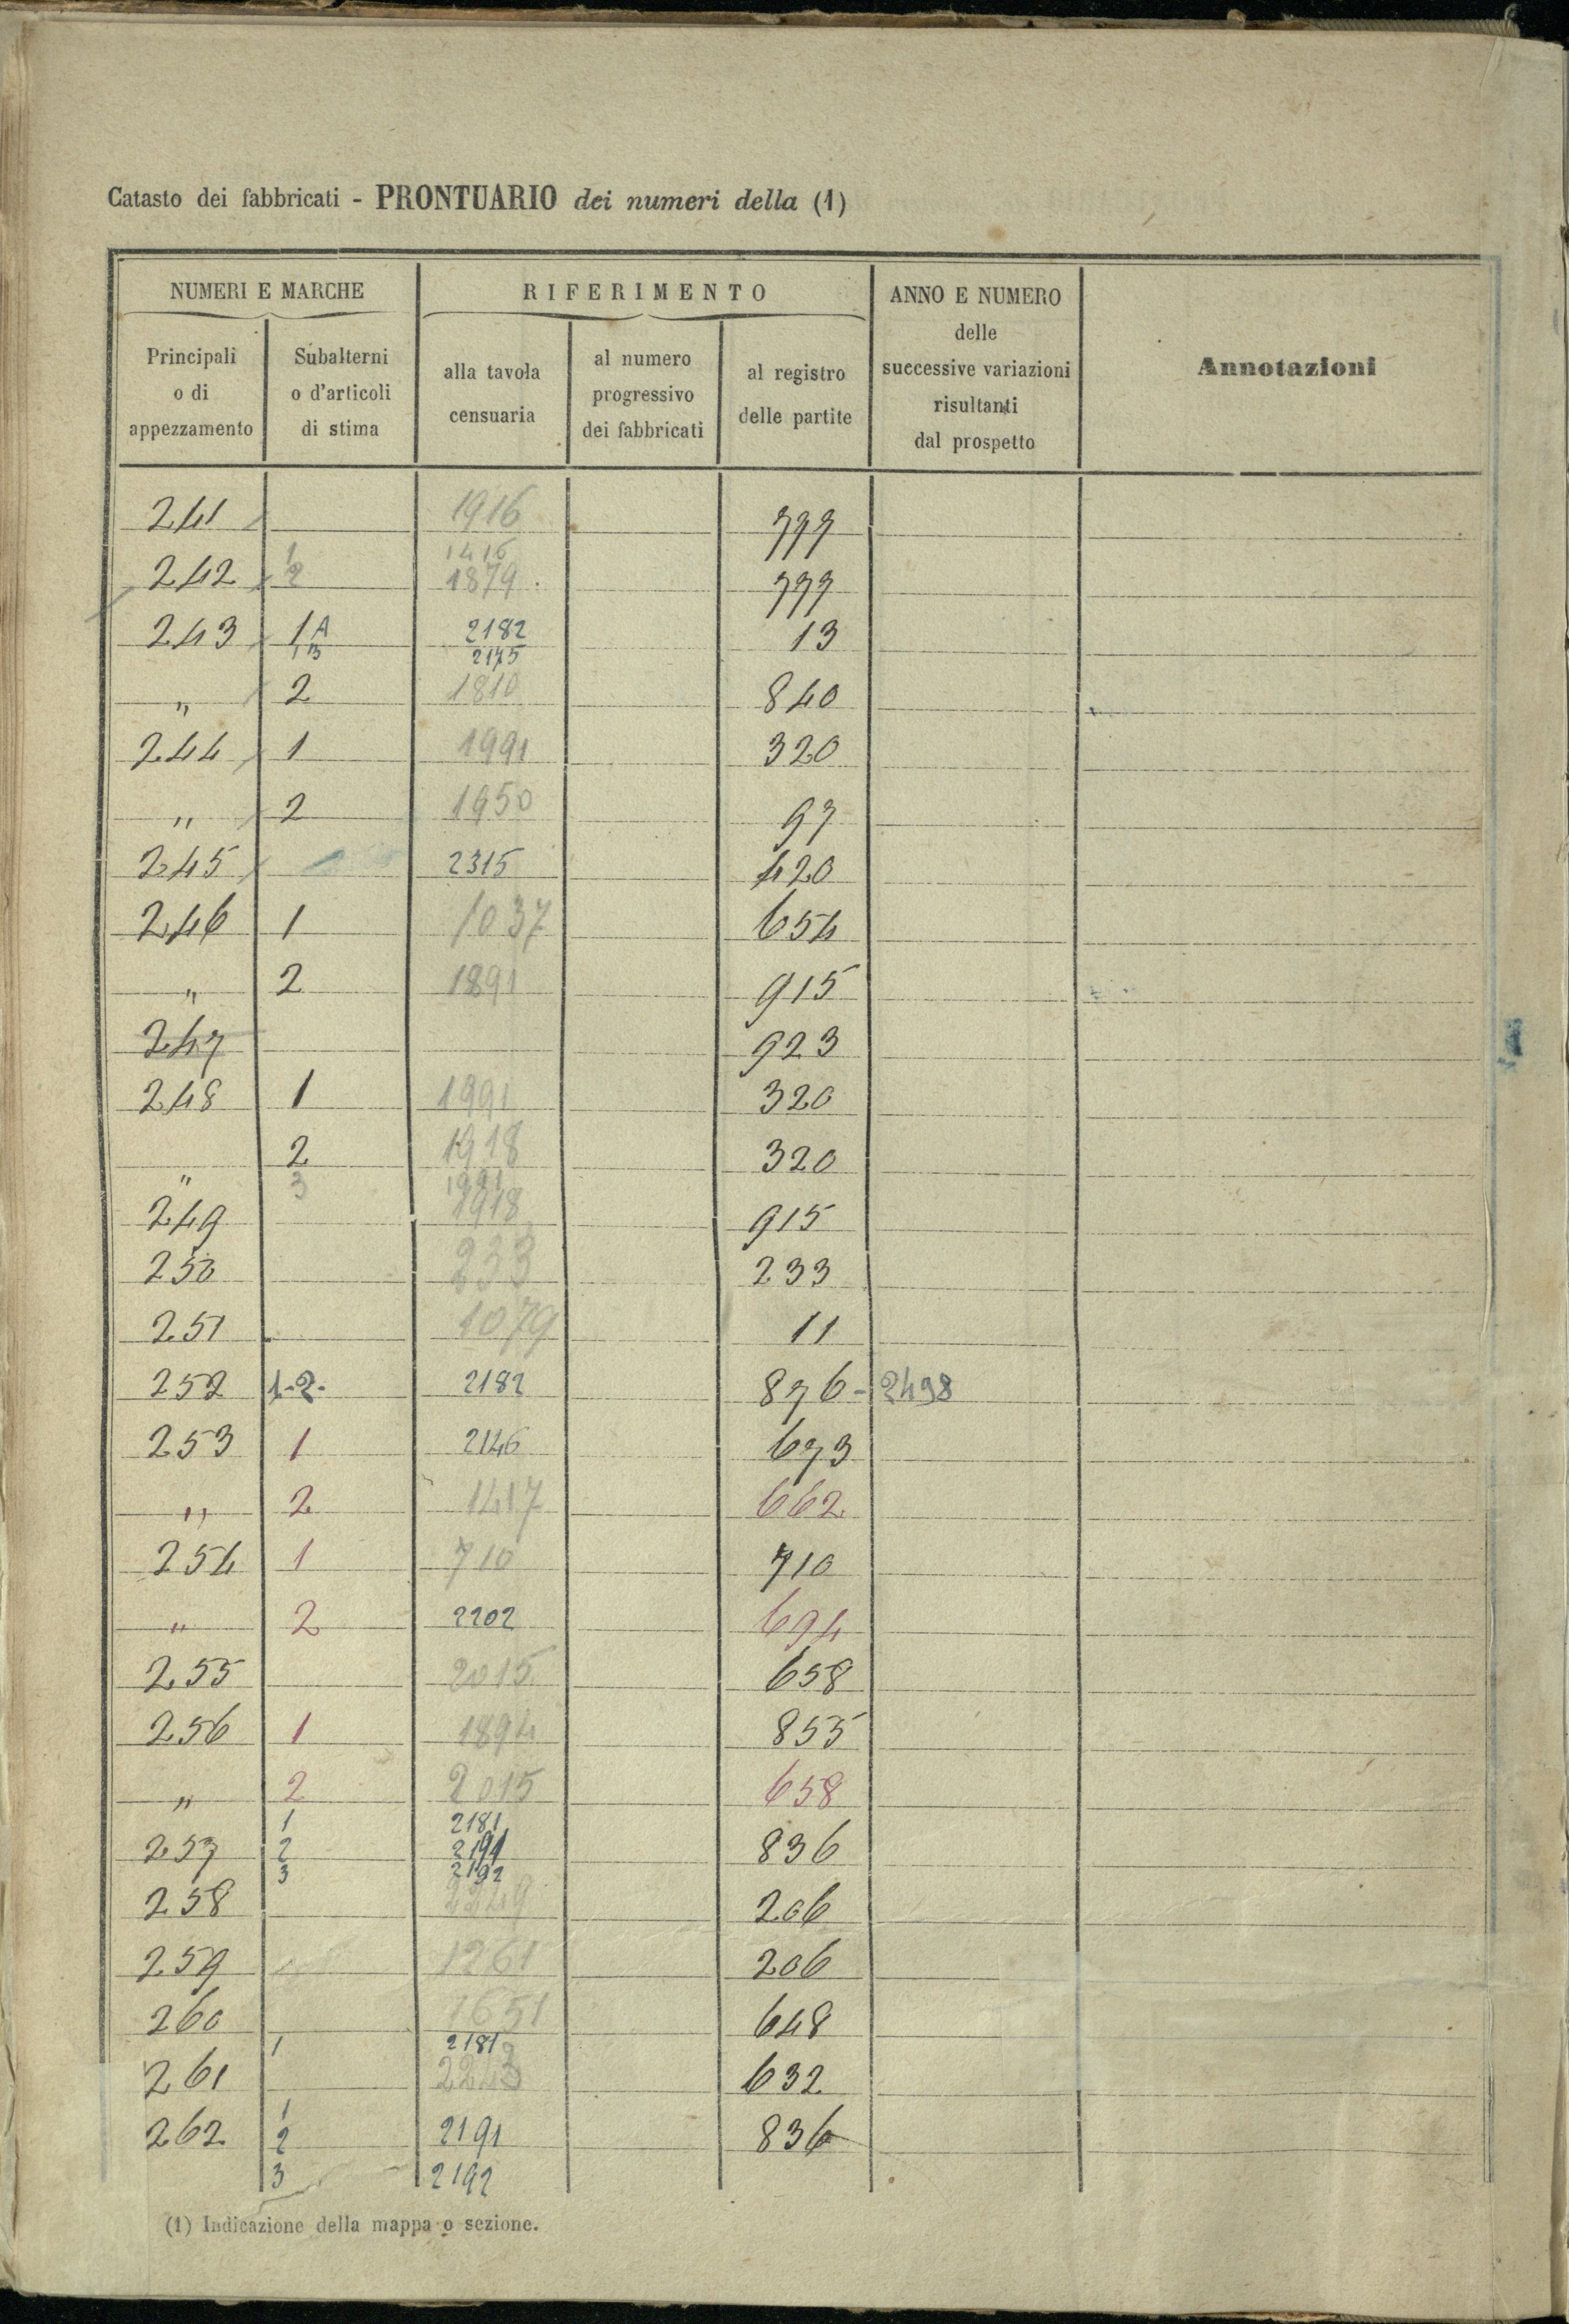 Catasto dei fabbricati - PRONTUARIO dei numeri della (1)
NUMERI E MARCHE
RIFERIMENTO
ANNO E NUMERO
delle
successive variazioni
risultanti
dal prospetto
Annotazioni
Principali
o di
appezzamento
Subalterni
o d'articoli
di stima
alla tavola
censuaria
al numero
progressivo
dei fabbricati
al registro
delle partite
241 1916 777
1 1416
242 2 1879 777
243 1 A 2182 13
1 B 2175
„ 2 1810 840
244 1 1991 320
„ 2 1950 97
245 2315 420
246 1 1037 654
„ 2 1891 915
247 923
248 1 1991 320
„ 2 1918 320
3 1991
249 1918 915
250 233 233
251 1079 11
252 1-2- 2182 876 - 2498
253 1 2146 673
„ 2 1417 662
254 1 710 710
„ 2 2202 694
255 2015 658
256 1 1894 855
„ 2 2015 658
1 2181
257 2 2191 836
3 2192
258 2249 206
259 1261 206
260 1651 648
1 2181
261 632
1
262 2 2191 836
3 2192
(1) Indicazione della mappa o sezione.